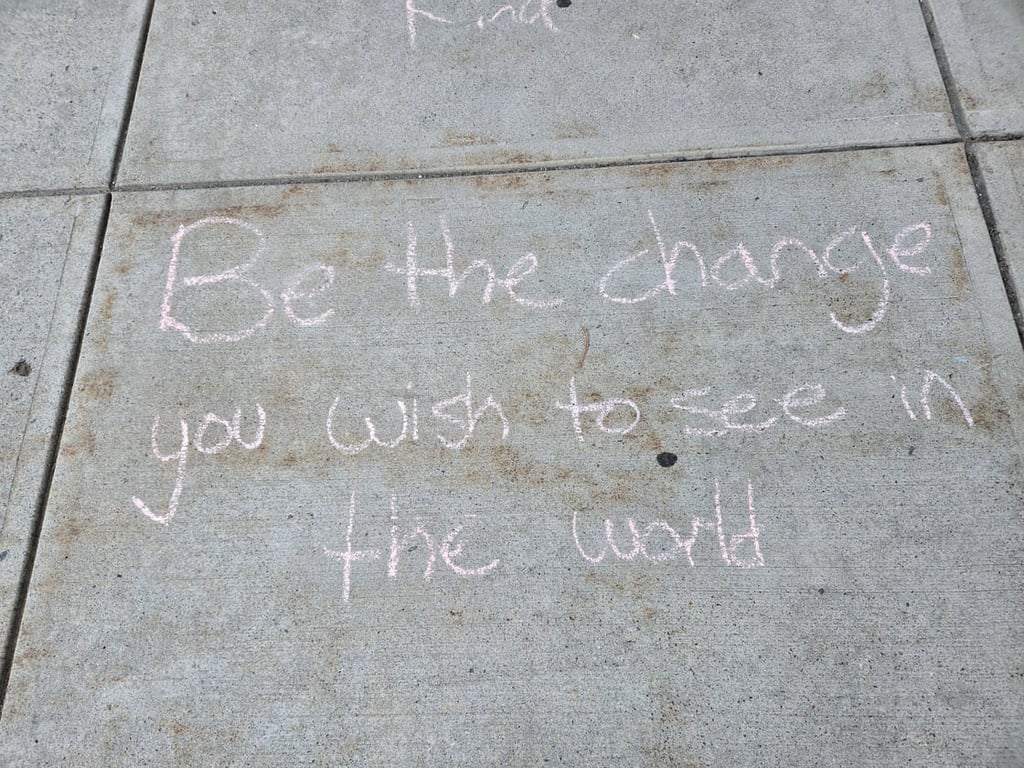 Kind
Be the change
you wish to see in
the world